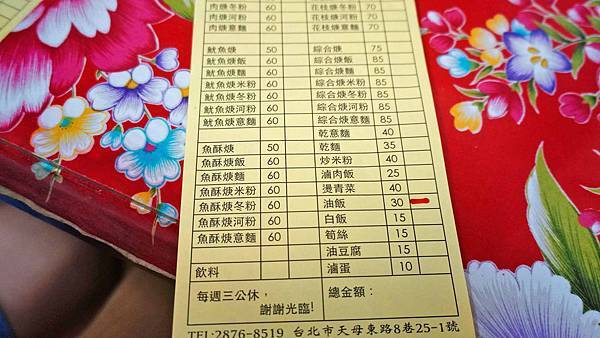 肉焿冬粉 60 花枝焿冬粉 70
肉焿河粉 60 花枝焿河粉 70
肉焿意麵 60 花枝焿意麵 70
魷魚焿 50 綜合焿 75
魷魚焿飯 60 綜合焿飯 85
魷魚焿麵 60 綜合焿麵 85
魷魚焿米粉 60 綜合焿米粉 85
魷魚焿冬粉 60 綜合焿冬粉 85
魷魚焿河粉 60 綜合焿河粉 85
魷魚焿意麵 60 綜合焿意麵 85
乾意麵 40
魚酥焿 50 乾麵 35
魚酥焿飯 60 炒米粉 40
魚酥焿麵 60 滷肉飯 25
魚酥焿米粉 60 燙青菜 40
魚酥焿冬粉 60 油飯 30
魚酥焿河粉 60 白飯 15
魚酥焿意麵 60 筍絲 15
油豆腐 15
飲料 滷蛋 10
每週三公休， 總金額：
謝謝光臨!
TEL:2876-8519 台北市天母東路8巷25-1號